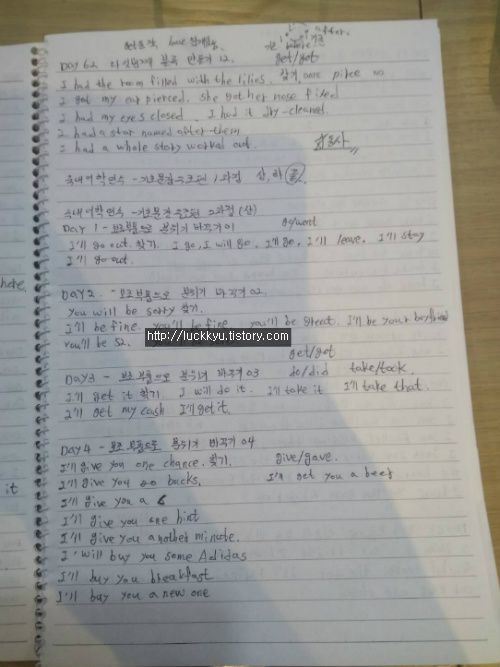 after.
before
DAY 62 만들기 12. get/got
I had the room filled with the lilies. 찾기 one piece no
I got my ear pierced. she got her nose fixed
I had my eyes closed I had it dry-cleaned.
I had a star named after them
I had a whole story worked out.
국내어학연수 - 기초문장 1과정 상, 하
국내어학연수 - 기초문장 2과정 (상)
DAY 1 - 분위기 바꾸기 01 go/went
I'll go out. 찾기. I go, I will go. I'll go. I'll leave. I'll stay
I'll go out.
DAY 2. - 분위기 바꾸기 02.
You will be sorry 찾기.
I'll be fine. you'll be fine you'll be great. I'll be your boyfriend
You'll be 52.
http://luckkyu.tistory.com
get/got
DAY 3 - 분위기 바꾸기 03 do/did take/took.
I'll get it 찾기. I will do it. I'll take it I'll take that.
I'll get my cash I'll get it.
DAY 4 - 분위기 바꾸기 04
I'll give you one chance. 찾기. give/gave.
I'll give you 20 bucks. I'll get you a beer
I'll give you a 6
I'll give you one hint
I'll give you another minute.
I will buy you some Adidas
I'll buy you breakfast
I'll buy you a new one
here,
it